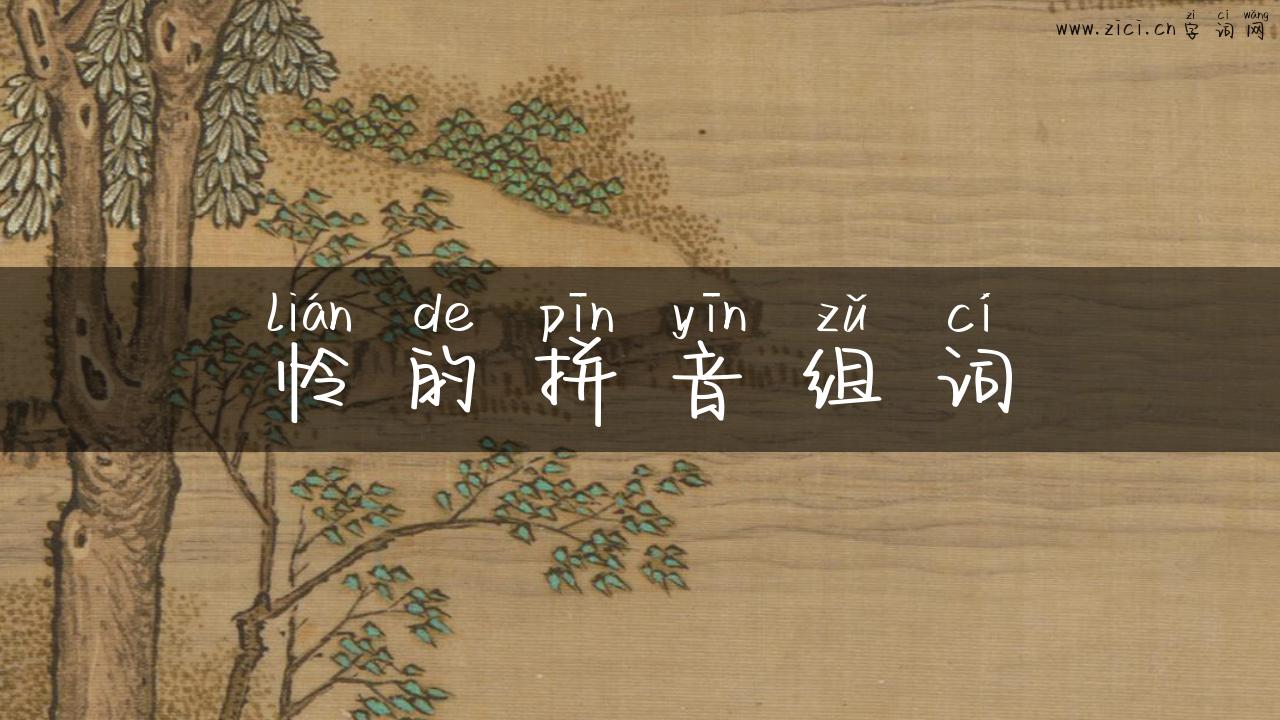 zì cí wǎng
www.zici.cn 字 词 网
lián de pīn yīn zǔ cí
怜 的 拼 音 组 词